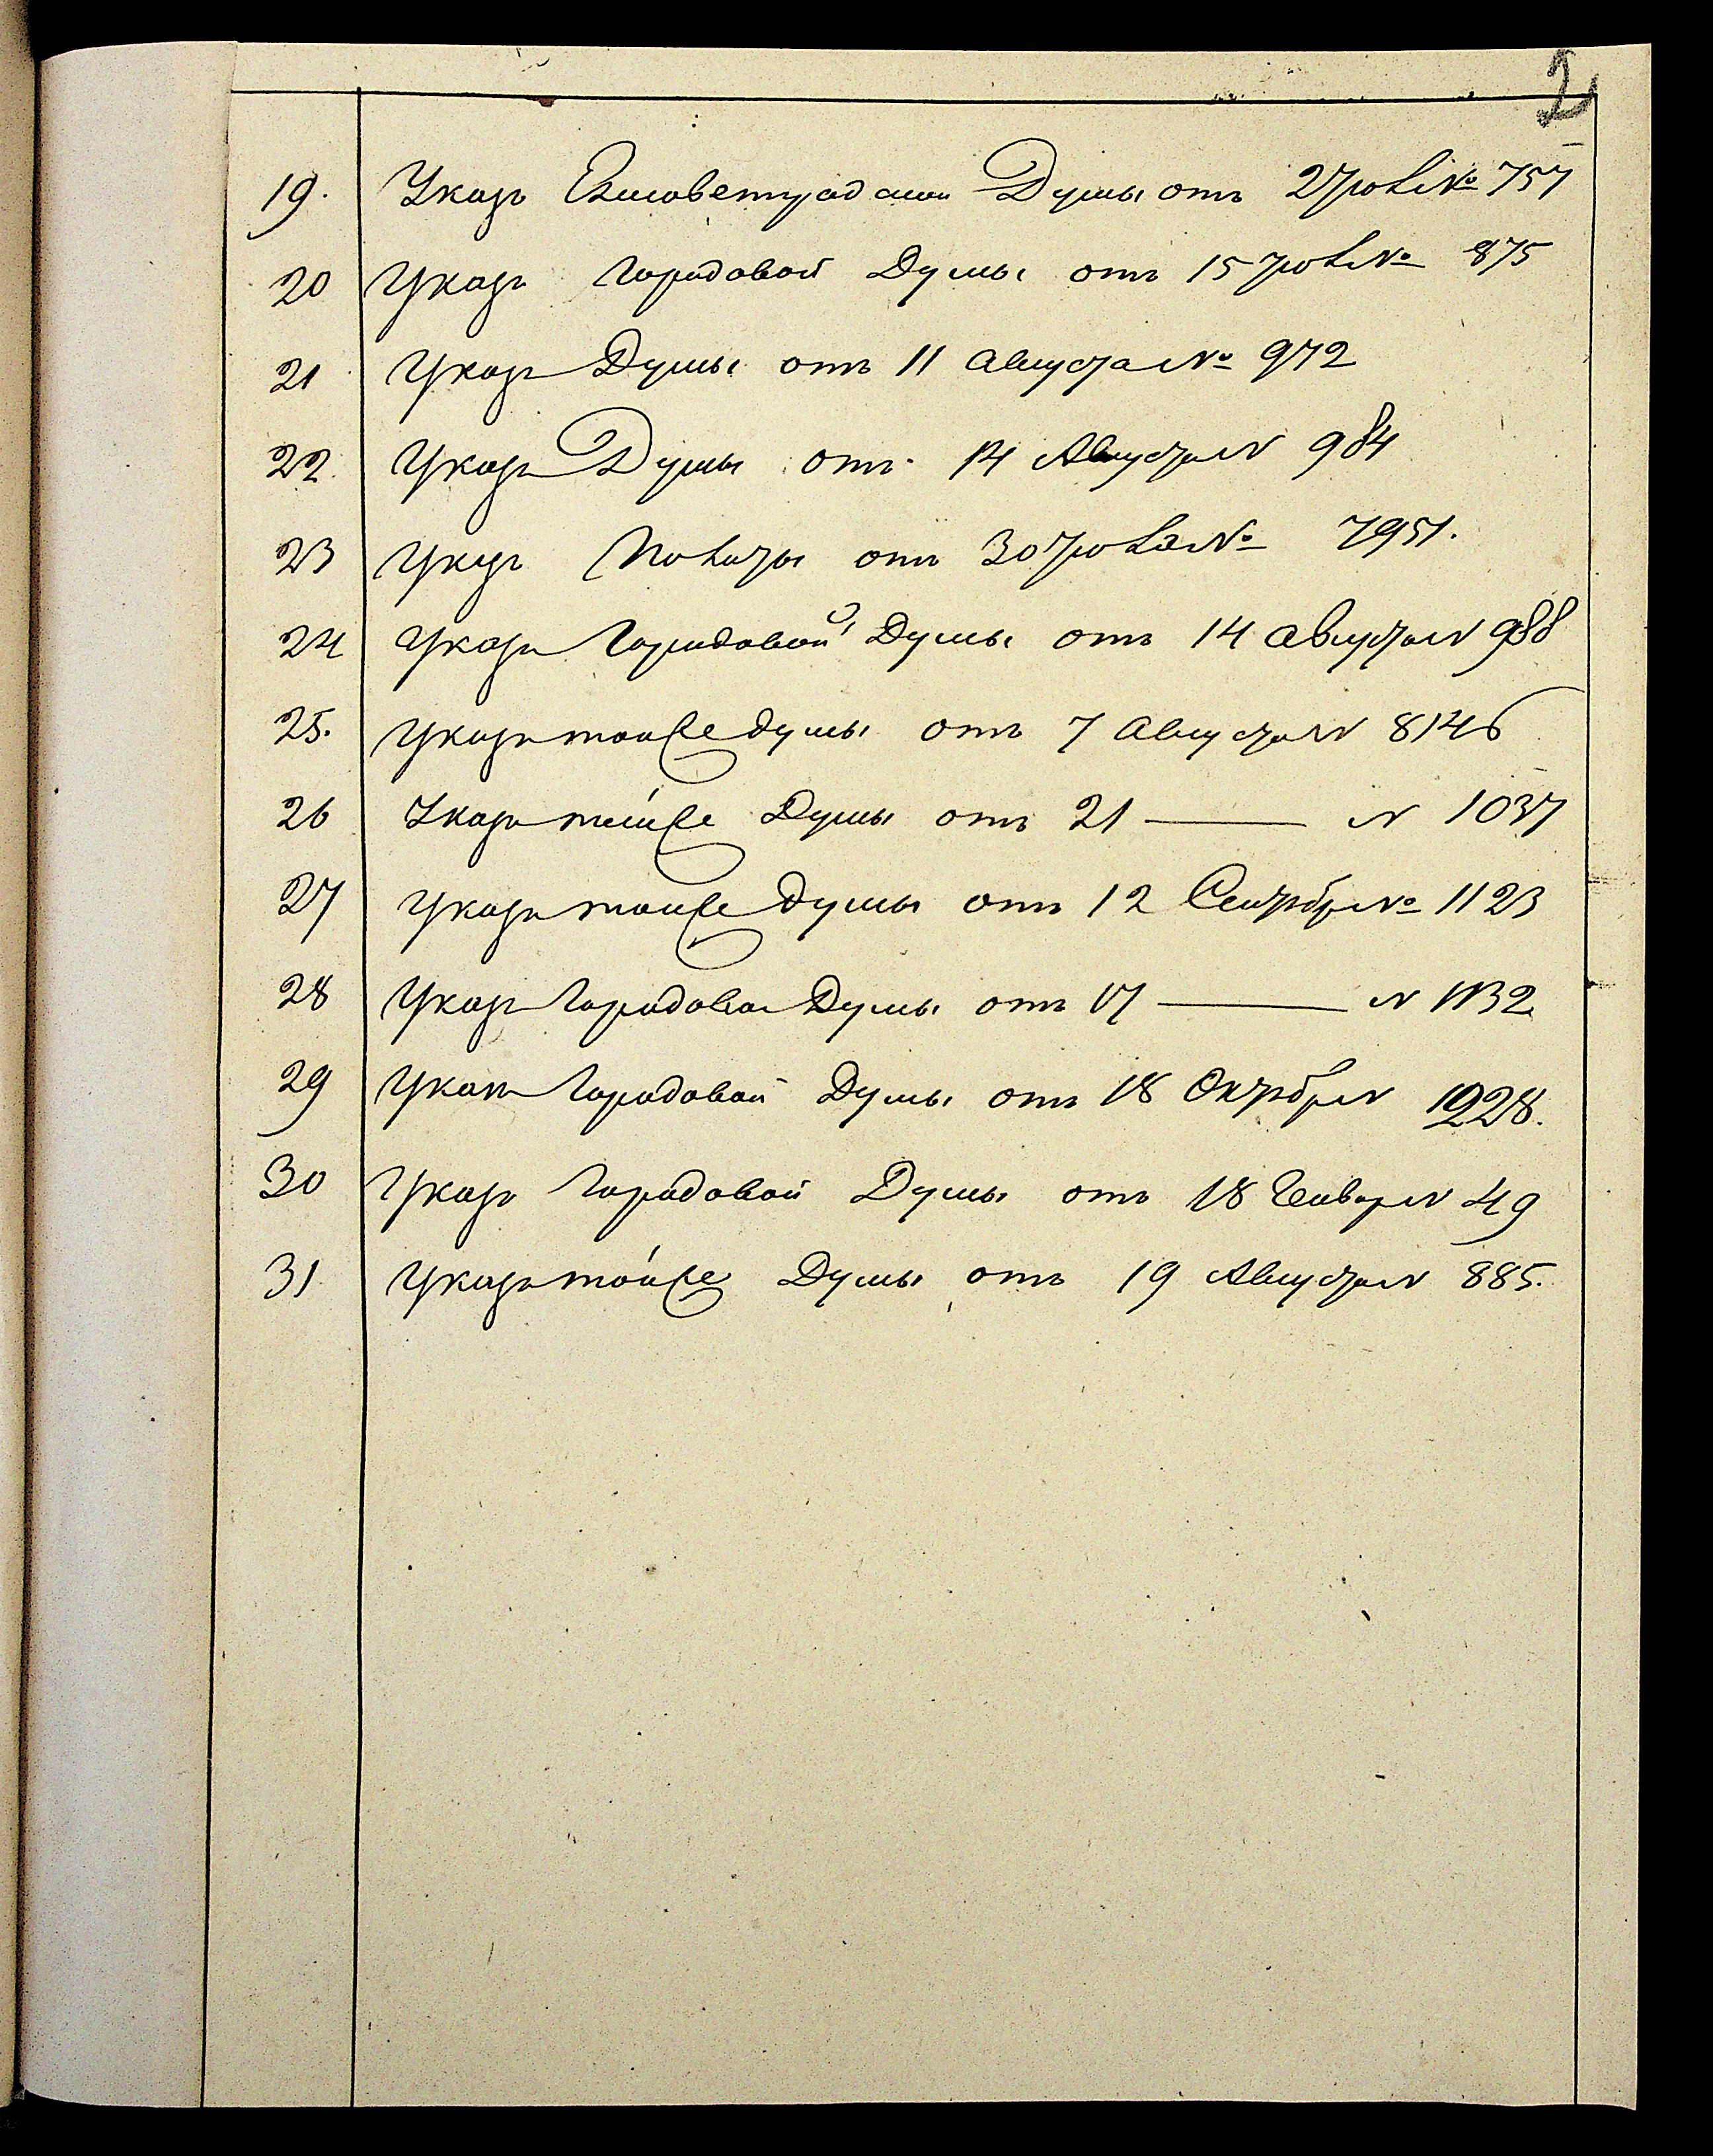 2
19. Указъ Елисаветградской Думы отъ 27 юля № 757
20 Указъ Городовой Думы отъ 15 юля № 875
21 Указъ Думы отъ 11 августа № 972
22. Указъ Думы отъ 14 Августа № 984
23 Указъ отъ 30 юля № 7951.
24 Указъ Городовой Думы отъ 14 августа № 988
25. Указъ тойже думы отъ 7 Августа № 8146
26 Указъ тойже Думы отъ 21 — № 1037
27 Указъ тойже думы отъ 12 Сентябр № 1123
28 Указъ Городовой Думы отъ 17 — № 1132
29 Указъ Городовой Думы отъ 18 Октябр № 1228.
30 Указъ Городовой Думы отъ 18 Генвар № 49
31 Указъ тойже Думы отъ 19 Августа № 885.